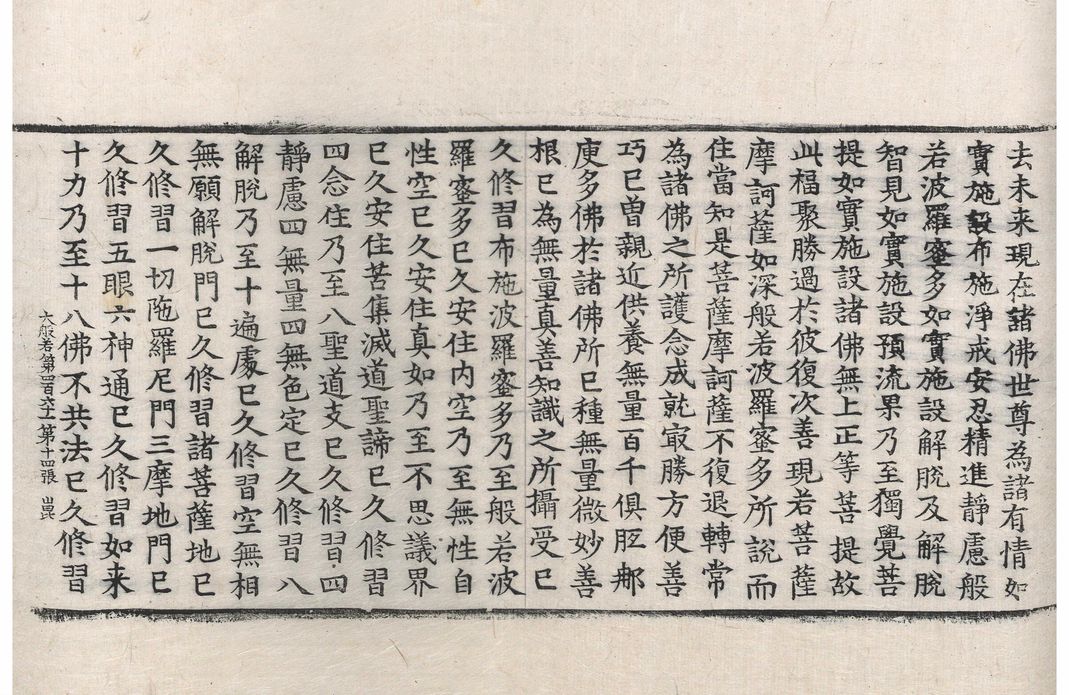 去未来現在諸佛世尊為諸有情如
實施設布施淨戒安忍精進靜慮般
若波羅蜜多如實施設解脫及解脫
智見如實施設預流果乃至獨覺菩
提如實施設諸佛無上正等菩提故
此福聚勝過於彼復次善現若菩薩
摩訶薩如深般若波羅蜜多所說而
住當知是菩薩摩訶薩不復退轉常
為諸佛之所護念成就冣勝方便善
巧已曾親近供養無量百千俱胝那
庾多佛於諸佛所已種無量微妙善
根已為無量真善知識之所攝受已
久修習布施波羅蜜多乃至般若波
羅蜜多已久安住內空乃至無性自
性空已久安住真如乃至不思議界
已久安住苦集滅道聖諦已久修習
四念住乃至八聖道支已久修習四
靜慮四無量四無色定已久修習八
解脫乃至十遍處已久修習空無相
無願解脫門已久修習諸菩薩地已
久修習一切陁羅尼門三摩地門已
久修習五眼六神通已久修習如来
十力乃至十八佛不共法已久修習
大般若第四百六十一 第十四張 崑